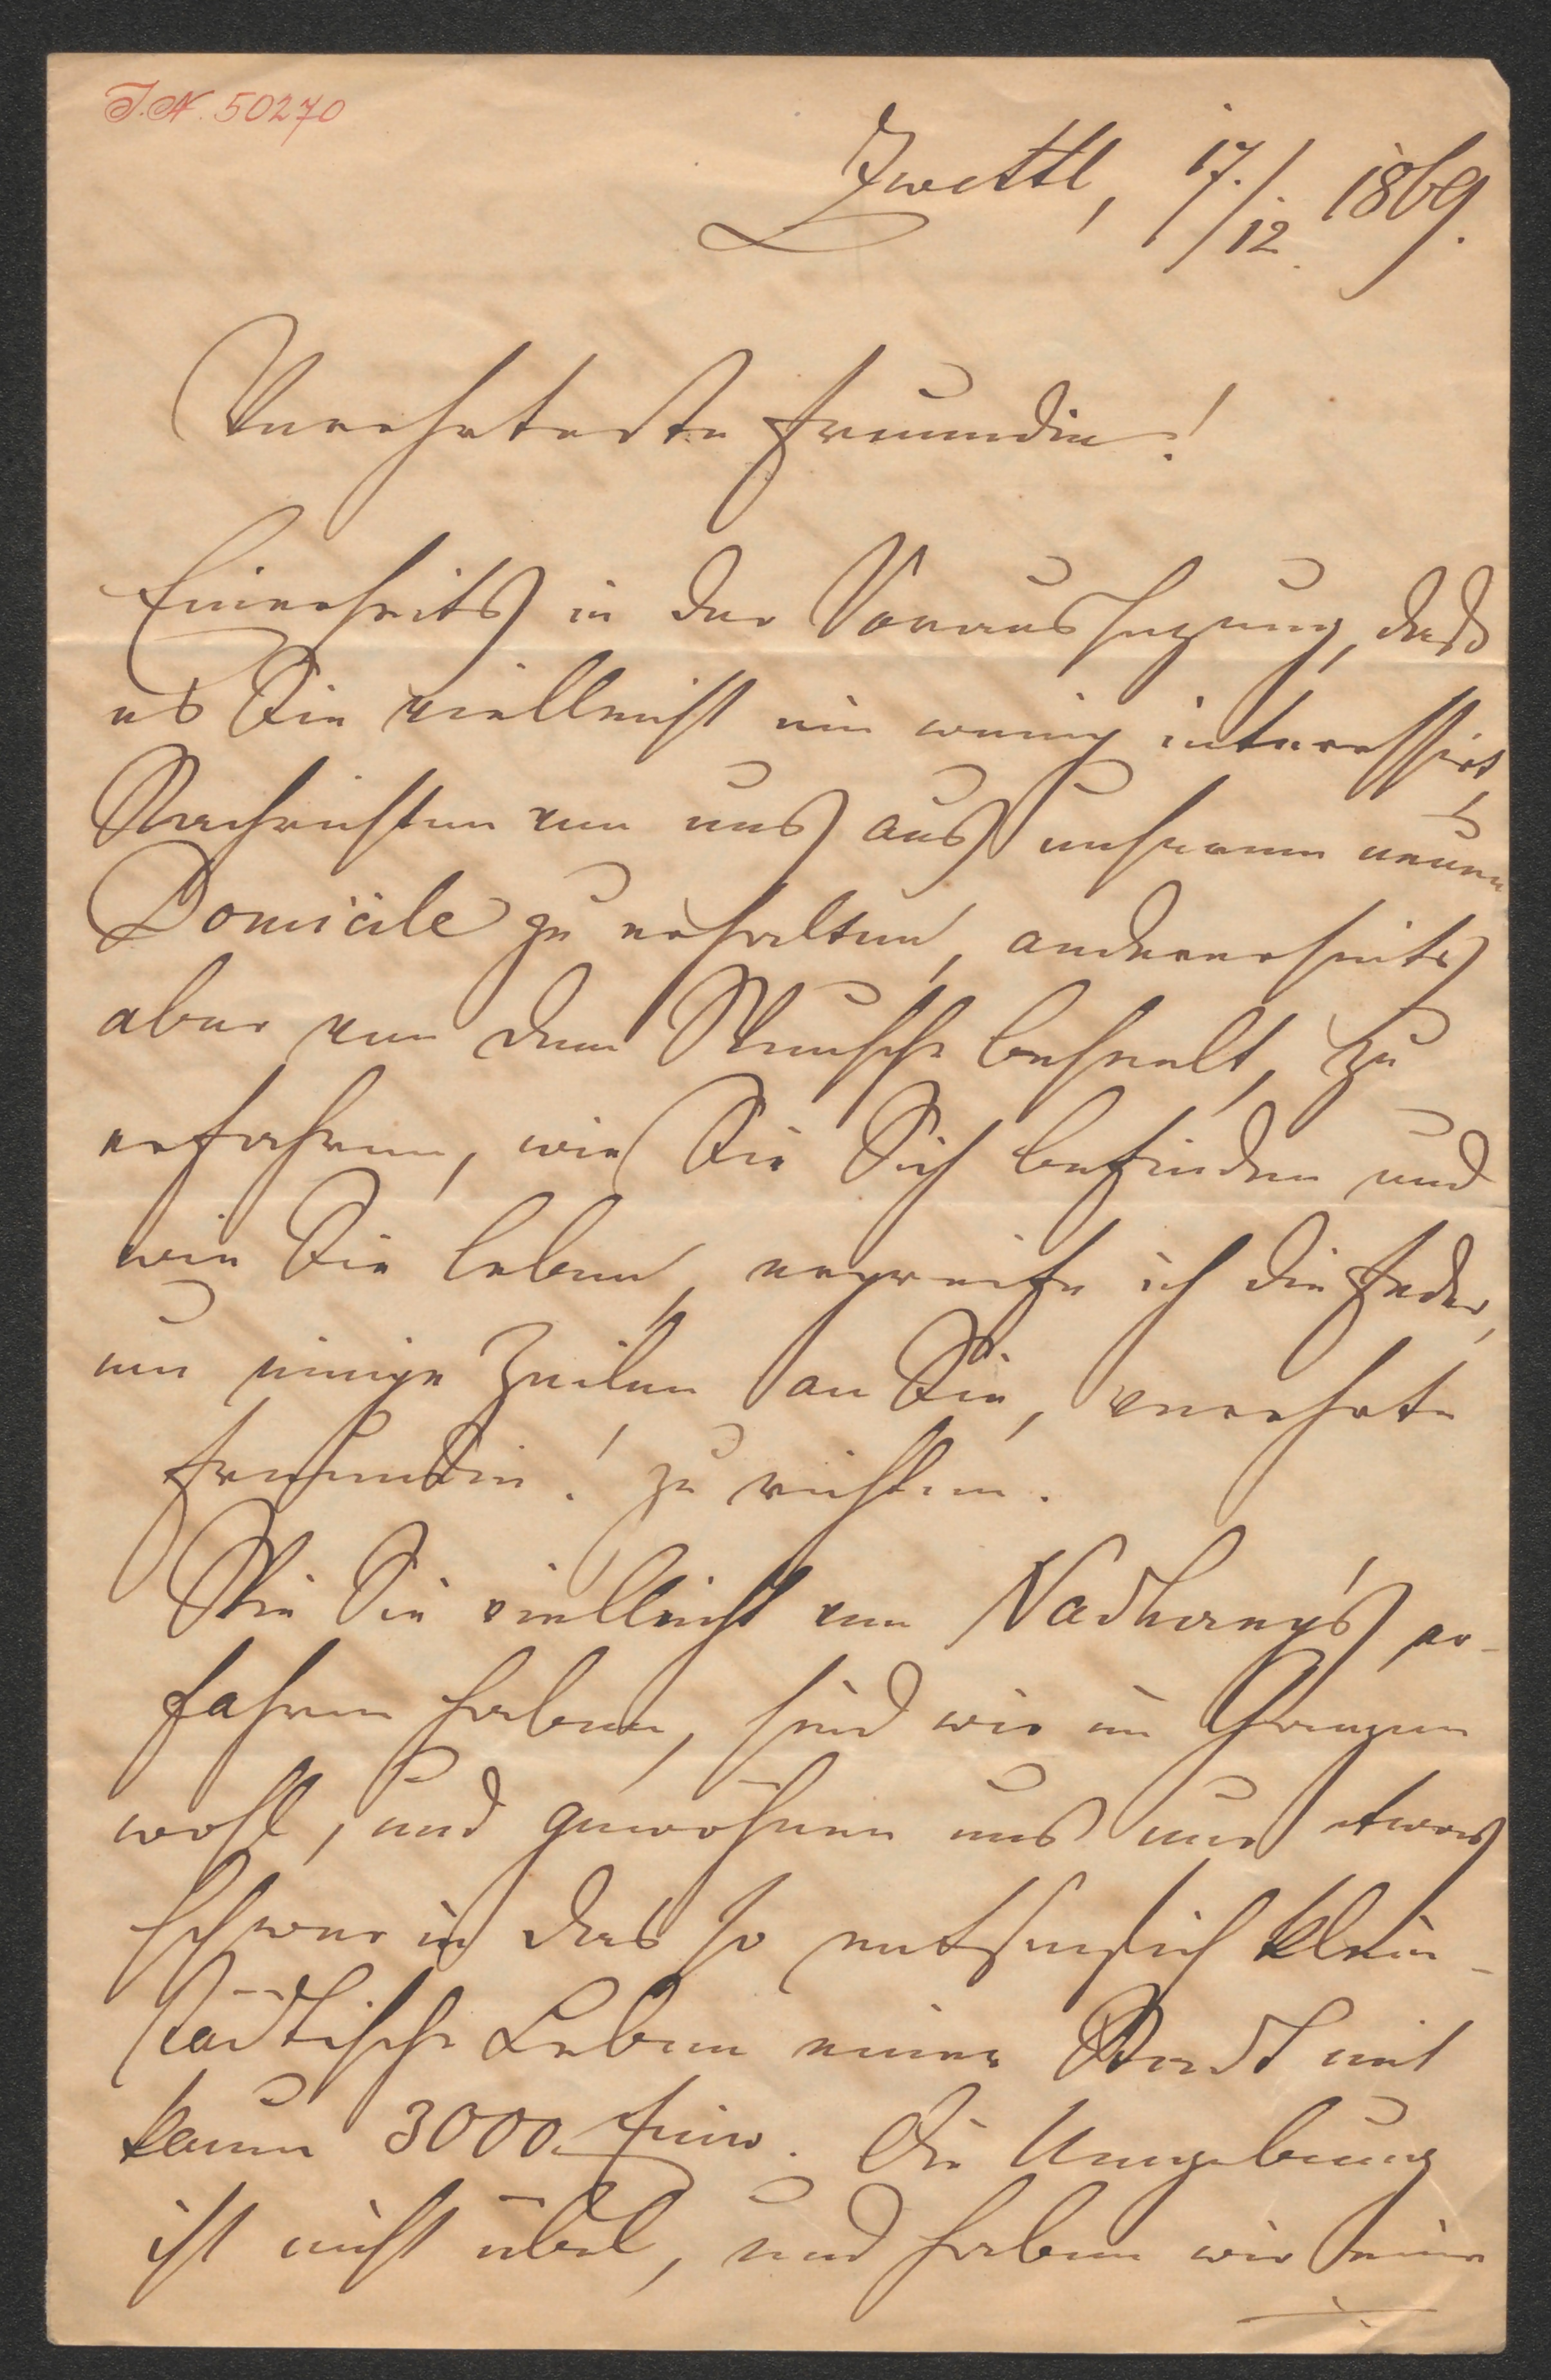 J.N. 50270
Zwettl, 17./12. 1869.
Verehrteste Freundin!
Einerseits in der Voraussezung, daß
es Sie vielleicht ein wenig interessirt,
Nachrichten von uns aus unserem neuen
Domicile zu erhalten, andererseits
aber von dem Wunsche beseelt, zu
erfahren, wie Sie Sich befinden und
wie Sie leben, ergreife ich die Feder,
um einige Zeilen an Sie, verehrte
Freundin! zu richten.
Wie Sie vielleicht von Nadherny's er-
fahren haben, sind wir im Ganzen
wohl, und gewöhnen uns nur etwas
schwer in das so entsezlich klein-
städtische Leben einer Stadt mit
kaum 3000 Einw. Die Umgebung
ist nicht übel, und haben wir eine